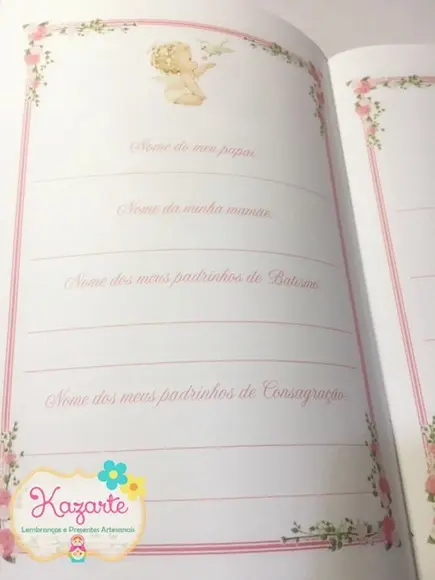 Nome do meu papai
Nome da minha mamãe
Nome dos meus padrinhos de Batismo
Nome dos meus padrinhos de Consagração
Kazarte
Lembranças e Presentes Artesanais